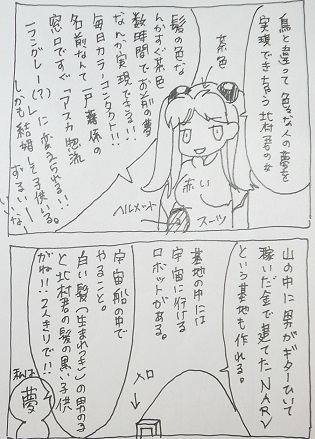 鳥と違って色んな人の夢を
実現できちゃう北村君の女
茶色
髪の色な
んかすぐ茶色
数時間でお前の夢
なんか実現できる!!
毎日カラーコンタクト!!
名前なんて戸籍係の
窓口ですぐ「アスカ惣流
に変えられる!!
しかも結婚して子供いる。
ずるいーいいな
赤い
スーツ
ヘルメット
山の中に男がギターひいて
稼いだ金で建てたNARV
という基地も作れる。
基地の中には
宇宙に行ける
ロボットがある。
入口
宇宙船の中で
やること。
白い髪(生まれつき)の男の子
と北村君の髪の黒い子供
がね!!2人きりで!!
夢